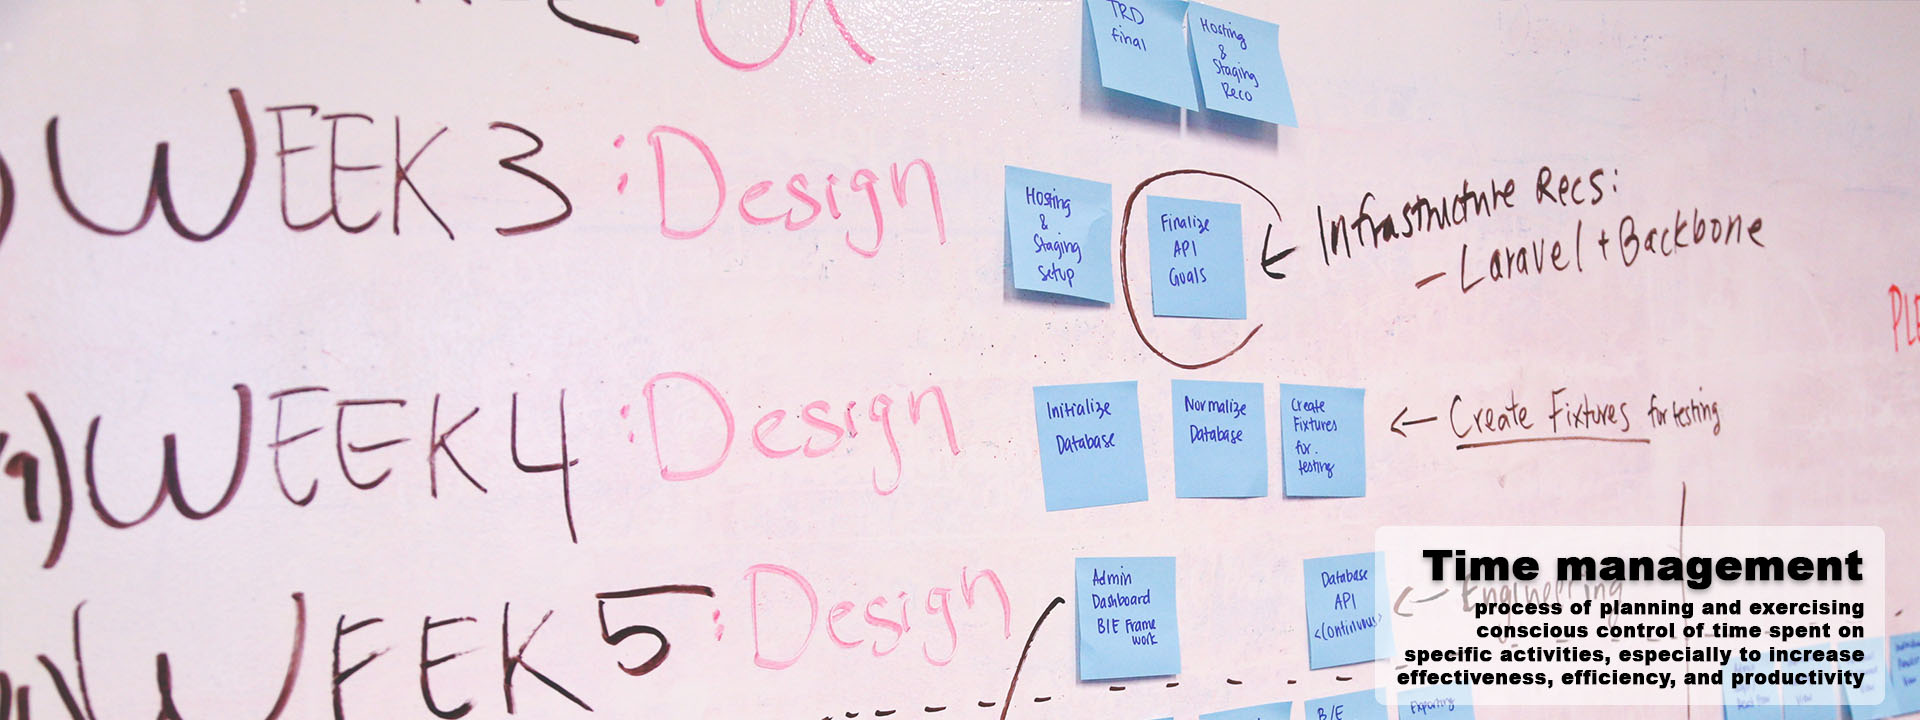 TRD
final
Hosting
&
Staging
Reco
WEEK 3 : Design
Hosting
&
Staging
Setup
Finalize
API
Goals
Infrastructure Recs:
- Laravel + Backbone
WEEK 4 : Design
Initialize
Database
Normalize
Database
Create
Fixtures
for
testing
← Create Fixtures for testing
WEEK 5 : Design
Admin
Dashboard
B/E Frame
work
Database
API
<Continuous>
← Engineering
B/E
Exporting
Time management
process of planning and exercising
conscious control of time spent on
specific activities, especially to increase
effectiveness, efficiency, and productivity